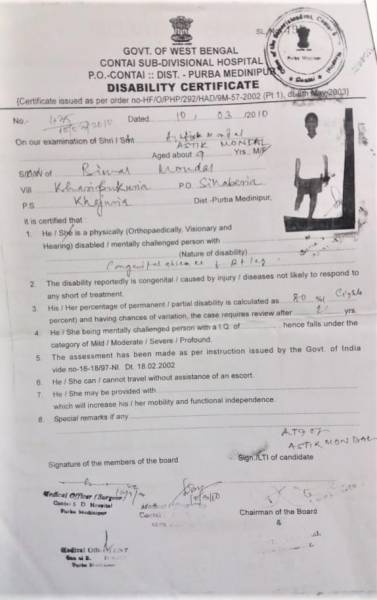 GOVT. OF WEST BENGAL
CONTAI SUB-DIVISIONAL HOSPITAL
P.O.-CONTAI :: DIST. - PURBA MEDINIPUR
DISABILITY CERTIFICATE
{Certificate issued as per order no-HF/O/PHP/292/HAD/9M-57-2002 (Pt.1), dt. May 2003}
No.- Dated 10, 03, 2010
On our examination of Shri / Smt ASTIK MONDAL
Aged about 9 Yrs. M/F
S/D/W of Bimal Mondal
Vill P.O.
P.S. Dist -Purba Medinipur,
it is certified that :
1. He / She is a physically (Orthopaedically, Visionary and
Hearing) disabled / mentally challenged person with
(Nature of disability)
Congenital absence of leg
2. The disability reportedly is congenital / caused by injury / diseases not likely to respond to
any short of treatment.
3. His / Her percentage of permanent / partial disability is calculated as 80 %
percent) and having chances of variation, the case requires review after yrs.
4. He / She being mentally challenged person with a I.Q. of hence falls under the
category of Mild / Moderate / Severe / Profound.
5. The assessment has been made as per instruction issued by the Govt. of India
vide no-16-18/97-NI. Dt. 18.02.2002
6. He / She can / cannot travel without assistance of an escort.
7. He / She may be provided with
which will increase his / her mobility and functional independence.
8. Special remarks if any
LTI OF
ASTIK MONDAL
Signature of the members of the board. Sign./LTI of candidate
Medical Officer (Surgeon)
Contai S. D. Hospital
Purba Medinipur
Chairman of the Board
&